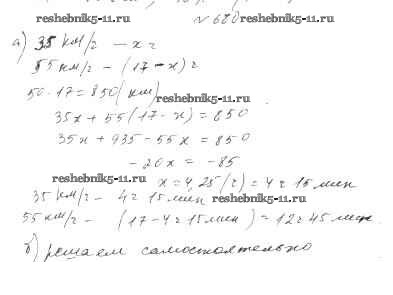 reshebnik5-11.ru № 680 reshebnik5-11.ru
а) 35 км/ч — x ч
55 км/ч — (17 - x) ч
50 · 17 = 850 (км) reshebnik5-11.ru
35x + 55(17 - x) = 850
35x + 935 - 55x = 850
- 20x = -85
reshebnik5-11.ru x = 4,25 (ч) = 4 ч 15 мин
35 км/ч - 4 ч 15 мин reshebnik5-11.ru
55 км/ч - (17 - 4 ч 15 мин) = 12 ч 45 мин.
б) решаем самостоятельно